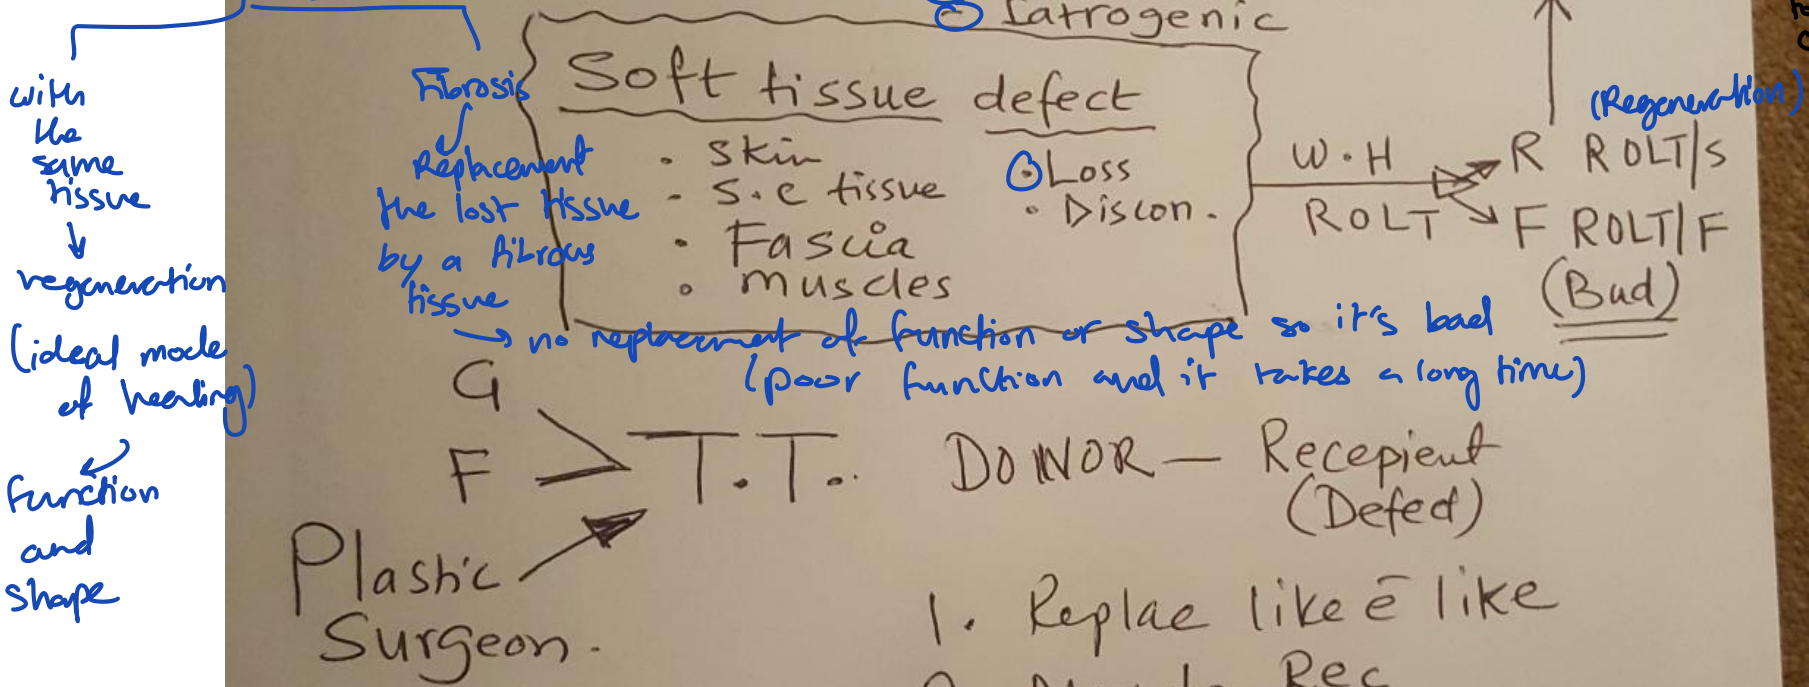 Iatrogenic
with
the
same
tissue
regeneration
(ideal mode
of healing)
function
and
shape
Fibrosis
Replacement
the lost tissue
by a fibrous
tissue
no replacement of function or shape so it's bad
(poor function and it takes a long time)
Soft tissue defect
• Skin
- S.C tissue
• Fascia
• muscles
• Loss
• Discon.
W.H
ROLT
(Regeneration)
R ROLT/S
F ROLT/F
(Bad)
G
F
T.T.
DONOR — Recepient
(Defect)
Plastic
Surgeon.
1. Replae like c̄ like
Rec